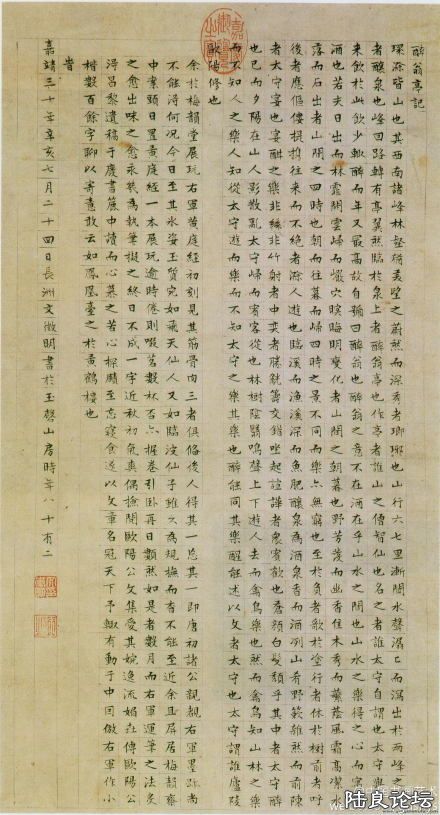 醉翁亭記
環滁皆山也其西南諸峰林壑猶美望之蔚然而深秀者瑯琊也山行六七里漸聞水聲潺潺而瀉出於兩峰之間
者釀泉也峰回路轉有亭翼然臨於泉上者醉翁亭也作亭者誰山之僧智仙也名之者誰太守自謂也太守與客
來飲於此飲少輒醉而年又最高故自號曰醉翁也醉翁之意不在酒在乎山水之間也山水之樂得之心而寓之
酒也若夫日出而林霏開雲歸而巖穴暝晦明變化者山間之朝暮也野芳發而幽香佳木秀而繁蔭風霜高潔水
落而石出者山間之四時也朝而往暮而歸四時之景不同而樂亦無窮也至於負者歌於塗行者休於樹前者呼
後者應傴僂提攜往來而不絕者滁人遊也臨溪而漁溪深而魚肥釀泉為酒泉香而酒冽山肴野蔌雜然而前陳
者太守宴也宴酣之樂非絲非竹射者中奕者勝觥籌交錯坐起諠譁者衆賓歡也蒼顏白髮頹乎其中者太守醉
也已而夕陽在山人影散亂太守歸而賓客從也林樹陰翳鳴聲上下遊人去而禽鳥樂也然而禽鳥知山林之樂
而不知人之樂人知從太守遊而樂而不知太守之樂其樂也醉能同其樂醒能述以文者太守也太守謂誰廬陵
歐陽修也
余於梅韻堂展玩右軍黃庭經初刻見其筋骨肉三者俱備後人得其一忘其一即唐初諸公親覩右軍墨跡尚
不能得何況今日至其氷姿玉質宛如飛天仙人又如臨波仙子雖久為規橅而杳不能至近余且屏居梅韻齋
中案頭日置黃庭經一本展玩逾時倦則啜茗數杯否亦握卷引卧再日頹然如是者數月而右軍運筆之法炙
之愈出味之愈永執筆擬之終日不成一字近秋初氣爽偶撿閱歐陽公文集愛其婉逸流媚傳歐陽公
得昌黎遺稿于廢書簏中讀而心慕之苦心探賾至忘寢食遂以文章名冠天下予輒有動于中因倣右軍作小
楷數百餘字聊以寄意敢云如鳳凰臺之於黃鶴樓也
旹
嘉靖三十年辛亥七月二十四日長洲文徵明書於玉磬山房時年八十有二
陆良论坛